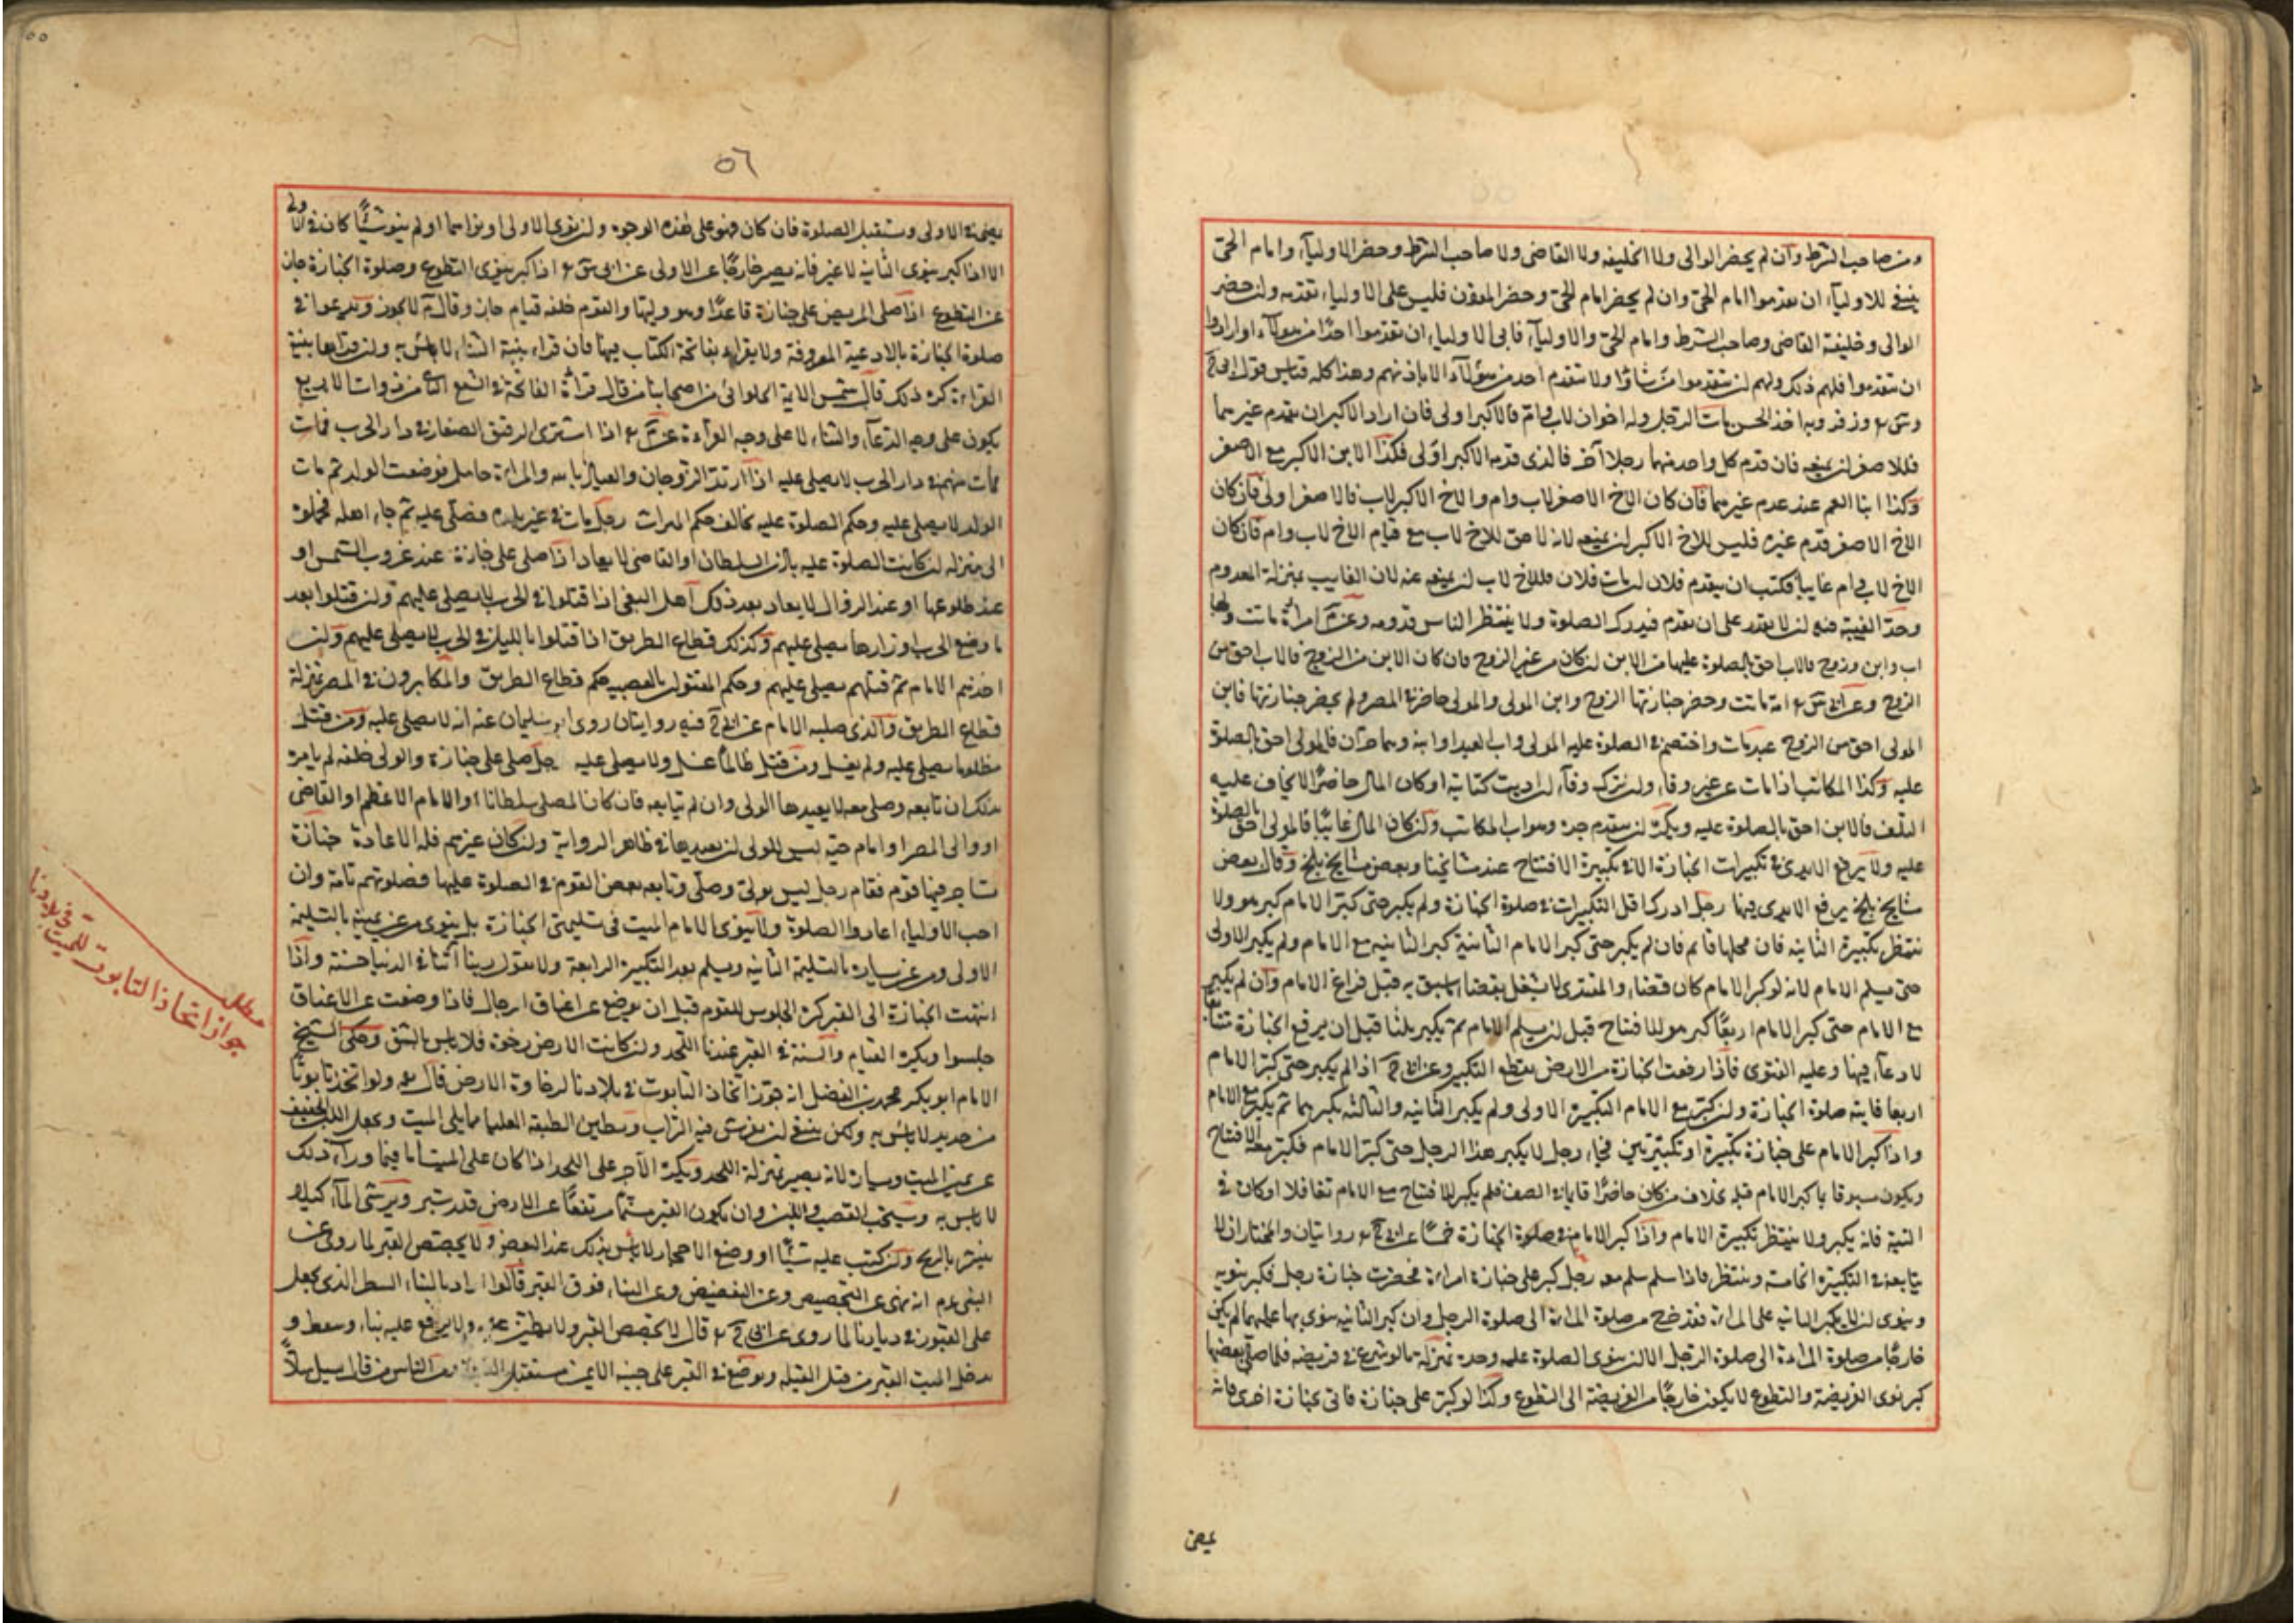 ومن صاحب الشرط وان لم يحضر الوالى ولا الخليفه ولا القاضى ولا صاحب الشرط وحضر الاولياء وامام الحى
ينبغى للاولياء ان يقدموا امام الحى وان لم يحضر امام الحى وحضر المؤذن فليس على الاولياء تقديمه ولن حضر
الوالى وخليفة القاضى وصاحب الشرط وامام الحى والاولياء فابى الاولياء ان يقدموا احدا من هؤلاء وارادوا
ان يتقدموا فلهم ذلك ولهم ان يقدموا من شاؤا ولا يتقدم احد من هؤلاء الا باذنهم وهذا كله قياس قول ابى ح
وس وزفر وبه اخذ الحسن مات الرجل وله اخوان لاب وام فالاكبر اولى فان اراد الاكبر ان يقدم غيرهما
فللاصغر ان يمنعه فان قدم كل واحد منهما رجلا آخر فالذى قدمه الاكبر اولى فكذا الابن الاكبر مع الاصغر
وكذا ابنا العم عند عدم غيرهما فان كان الاخ الاصغر لاب وام والاخ الاكبر لاب فالاصغر اولى فان كان
الاخ الاصغر قدم غيره فليس للاخ الاكبر ان يمنعه لانه لا حق للاخ لاب مع قيام الاخ لاب وام فان كان
الاخ لاب وام غايبا فكتب ان يتقدم فلان ان مات فلان فللاخ لاب ان يمنعه عنه لان الغايب بمنزلة المعدوم
وحد الغيبة فيه ان لا يقدر على ان يقدم فيدرك الصلوة ولا ينتظر الناس قدومه وعن م امراة ماتت ولها
اب وابن وزوج فالاب احق بالصلوة عليها من الابن ان كان من غير الزوج فان كان الابن من الزوج فالاب احق من
الزوج وعن ابى س امة ماتت وحضر جنازتها الزوج وابن المولى والمولى حاضر فى المصر ولم يحضر جنازتها فابن
المولى احق من الزوج عبد مات واختصم فى الصلوة عليه المولى واب العبد او ابنه وهما حران فالمولى احق بالصلوة
عليه وكذا المكاتب اذا مات عن غير وفاء ولن ترك وفاء ان اديت كتابته او كان المال حاضرا لا يخاف عليه
التلف فالابن احق بالصلوة عليه ويكره ان يتقدم جده وهو اب المكاتب وان كان المال غائبا فالمولى احق بالصلوة
عليه ولا يرفع الايدى فى تكبيرات الجنازة الا فى تكبيرة الافتتاح عند مشايخنا وبعض مشايخ بلخ وقال بعض
مشايخ بلخ يرفع الايدى فيها رجل ادرك اقل التكبيرات فى صلوة الجنازة ولم يكبر حتى كبر الامام كبر هو ولا
ينتظر تكبيرة الثانيه فان محلها قايم فان لم يكبر حتى كبر الامام الثانية كبر الثانيه مع الامام ولم يكبر الاولى
حتى يسلم الامام لانه لو كبر الامام كان قضاء والمقتدى لا يشتغل بقضاء ما سبق به قبل فراغ الامام وان لم يكبر
مع الامام حتى كبر الامام اربعا كبر هو للافتتاح قبل ان يسلم الامام ثم يكبر ثلثا قبل ان يرفع الجنازة تتابعا
لا دعاء فيها وعليه الفتوى فاذا رفعت الجنازة من الارض يقطع التكبير وعن ابى ح اذا لم يكبر حتى كبر الامام
اربعا فاتته صلوة الجنازة ولن كبر مع الامام التكبيرة الاولى ولم يكبر الثانيه والثالثه يكبرهما ثم يكبر مع الامام
واذا كبر الامام على جنازة تكبيرة او تكبيرتين فجاء رجل لا يكبر هذا الرجل حتى كبر الامام فكبر معه للافتتاح
ويكون مسبوقا بما كبر الامام قبله بخلاف من كان حاضرا قايما فى الصف فلم يكبر للافتتاح مع الامام تغافلا او كان فى
النية فانه يكبر ولا ينتظر تكبيرة الامام واذا كبر الامام فى صلوة الجنازة خمسا عن ابى ح روايتان والمختار ان لا
يتابعه فى التكبيرة الخامسة وينتظر فاذا سلم سلم معه رجل كبر على جنازة امراة فحضرت جنازة رجل فكبر ينويه
وينوى ان لا يكبر الثانيه على المراة فقد خرج من صلوة المراة الى صلوة الرجل وان كبر الثانيه ينوى بها عليهما لم يكن
خارجا من صلوة المراة الى صلوة الرجل الا ان ينوى الصلوة عليه وحده بمنزلة ما لو شرع فى فريضه فلما صلى بعضها
كبر ينوى الفريضة والتطوع لا يكون خارجا من الفريضة الى التطوع وكذا لو كبر على جنازة فاتى بجنازة اخرى فانه
يمضى
٥٦
يمضى فى الاولى ويستقبل الصلوة فان كان فهو على هذه الوجوه ولن نوى الاولى او نواهما او لم ينو شيئا كان فى الاولى
الا اذا كبر ينوى الثانية لا غير فانه يصير خارجا عن الاولى عن ابى س اذا كبر ينوى التطوع وصلوة الجنازة جاز
عن التطوع اذا صلى المريض على جنازة قاعدا وهو وليها والقوم خلفه قيام جاز وقال م لا يجوز ويدعوا فى
صلوة الجنازة بالادعية المعروفة ولا يقراء بفاتحة الكتاب فيها فان قراء بنية الثناء لا بأس به ولن قراها بنية
القراءة كره ذلك قال شمس الايمة الحلوائى من اصحابنا من قال قراءة الفاتحة فى الشفع الثانى من ذوات الاربع
يكون على وجه الدعاء والثناء لا على وجه القراءة عن م اذا اشترى الرقيق الصغار فى دار الحرب فمات
فمات منهم فى دار الحرب لا يصلى عليه اذا ارتد الزوجان والعياذ بالله والمراة حامل فوضعت الولد ثم مات
الولد لا يصلى عليه وحكم الصلوة عليه يخالف حكم الميراث رجل مات فى غير بلده فصلى عليه ثم جاء اهله فحملوه
الى منزله ان كانت الصلوة عليه باذن السلطان او القاضى لا يعاد اذا صلى على جنازة عند غروب الشمس او
عند طلوعها او عند الزوال لا يعاد بعد ذلك اهل البغى اذا قتلوا فى الحرب لا يصلى عليهم ولن قتلوا بعد
ما وضع الحرب اوزارها يصلى عليهم وكذلك قطاع الطريق اذا قتلوا بالليل فى الحرب لا يصلى عليهم ولن
اخذهم الامام ثم قتلهم يصلى عليهم وحكم المقتول بالعصبيه حكم قطاع الطريق والمكابرون فى المصر بمنزلة
قطاع الطريق والذى صلبه الامام عن ابى ح فيه روايتان روى ابو سليمان عنه انه لا يصلى عليه ومن قتل
مظلوما يصلى عليه ولم يغسل ومن قتل ظالما غسل ولا يصلى عليه رجل صلى على جنازة والولى خلفه لم يامره
بذلك ان تابعه وصلى معه لا يعيدها الولى وان لم يتابعه فان كان المصلى سلطانا او الامام الاعظم او القاضى
او والى المصر او امام حيه ليس للولى ان يعيدها فى ظاهر الرواية ولن كان غيرهم فله الاعادة جنازة
تشاجر فيها قوم فقام رجل ليس بولى وصلى وتابعه بعض القوم فى الصلوة عليها فصلوتهم تامة وان
احب الاولياء اعادوا الصلوة ولا ينوى الامام الميت فى تسليمتى الجنازة بل ينوى من عن يمينه بالتسليمة
الاولى ومن عن يساره بالتسليمة الثانيه ويسلم بعد التكبيرة الرابعة ولا يقول ربنا آتنا فى الدنيا حسنة واذا
انتهت الجنازة الى القبر كره الجلوس للقوم قبل ان يوضع عن اعناق الرجال فاذا وضعت عن الاعناق
جلسوا ويكره القيام والسنة فى القبر عندنا اللحد ولن كانت الارض رخوة فلا بأس بالشق وحكى الشيخ
الامام ابو بكر محمد بن الفضل انه جوز اتخاذ التابوت فى بلادنا لرخاوة الارض قال ولو اتخذ تابوتا
من حديد لا بأس به ولكن ينبغى ان يفرش فيه التراب ويطين الطبقة العليا مما يلى الميت ويجعل اللبن الخفيف
عن يمين الميت ويساره لانه يصير بمنزلة اللحد ويكره الآجر على اللحد اذا كان على الميت اما فيما وراء ذلك
لا بأس به ويستحب القصب واللبن وان يكون القبر مسنما مرتفعا عن الارض قدر شبر ويرش الماء كيلا
ينتشر بالريح ولن كتب عليه شيئا او وضع الاحجار لا بأس بذلك عند البعض ولا يجصص القبر لما روى عن
النبى عم انه نهى عن التجصيص وعن التفضيض وعن البناء فوق القبر قالوا اراد بالبناء السفط الذى يجعل
على القبور فى ديارنا لما روى عن ابى ح قال لا يجصص القبر ولا يطين ولا يرفع عليه بناء وسفط و
يدخل الميت القبر من قبل القبلة ويوضع فى القبر على جنبه الايمن مستقبل القبلة من الناس من قال يسل سلا
مطلب
جواز اتخاذ التابوت للميت فى بلادنا